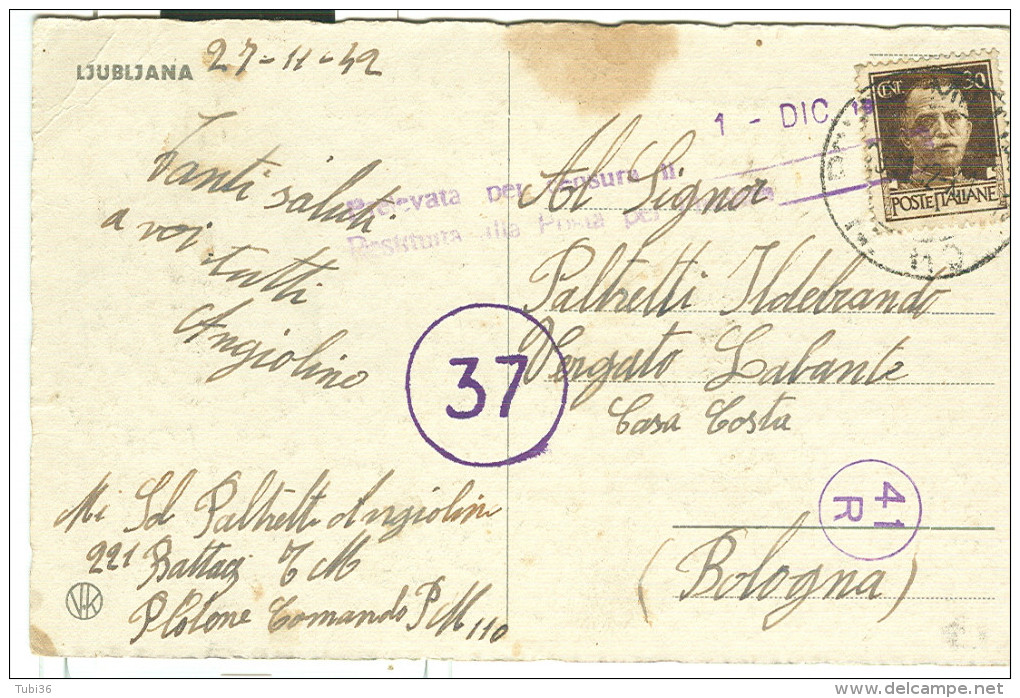 LJUBLJANA 27-11-42
Tanti saluti
a voi tutti
Angiolino
Mi Sd Paltretti Angiolin
221 Battag T M
Plotone Comando PM 110
VK
1 - DIC
per censura il
Posta per
37
Al Signor
Paltretti Ildebrando
Vergato Labante
Casa Costa
41
R
(Bologna)
CENT. 30
POSTE ITALIANE
Tubi36
delcampe.net